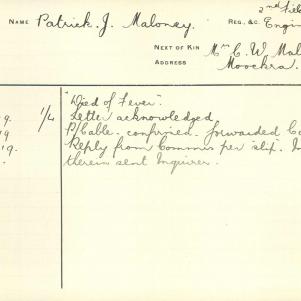 NAME Patrick. J. Maloney. REG. &C. 2nd Engin
NEXT OF KIN Mrs C. W. Mal
ADDRESS Moockra.
"Died of Fever".
9. 1/4 Letter acknowledged
19 P/Cable. confirmed. forwarded
19. Reply from Commis per slip.
therein sent Inquirer.